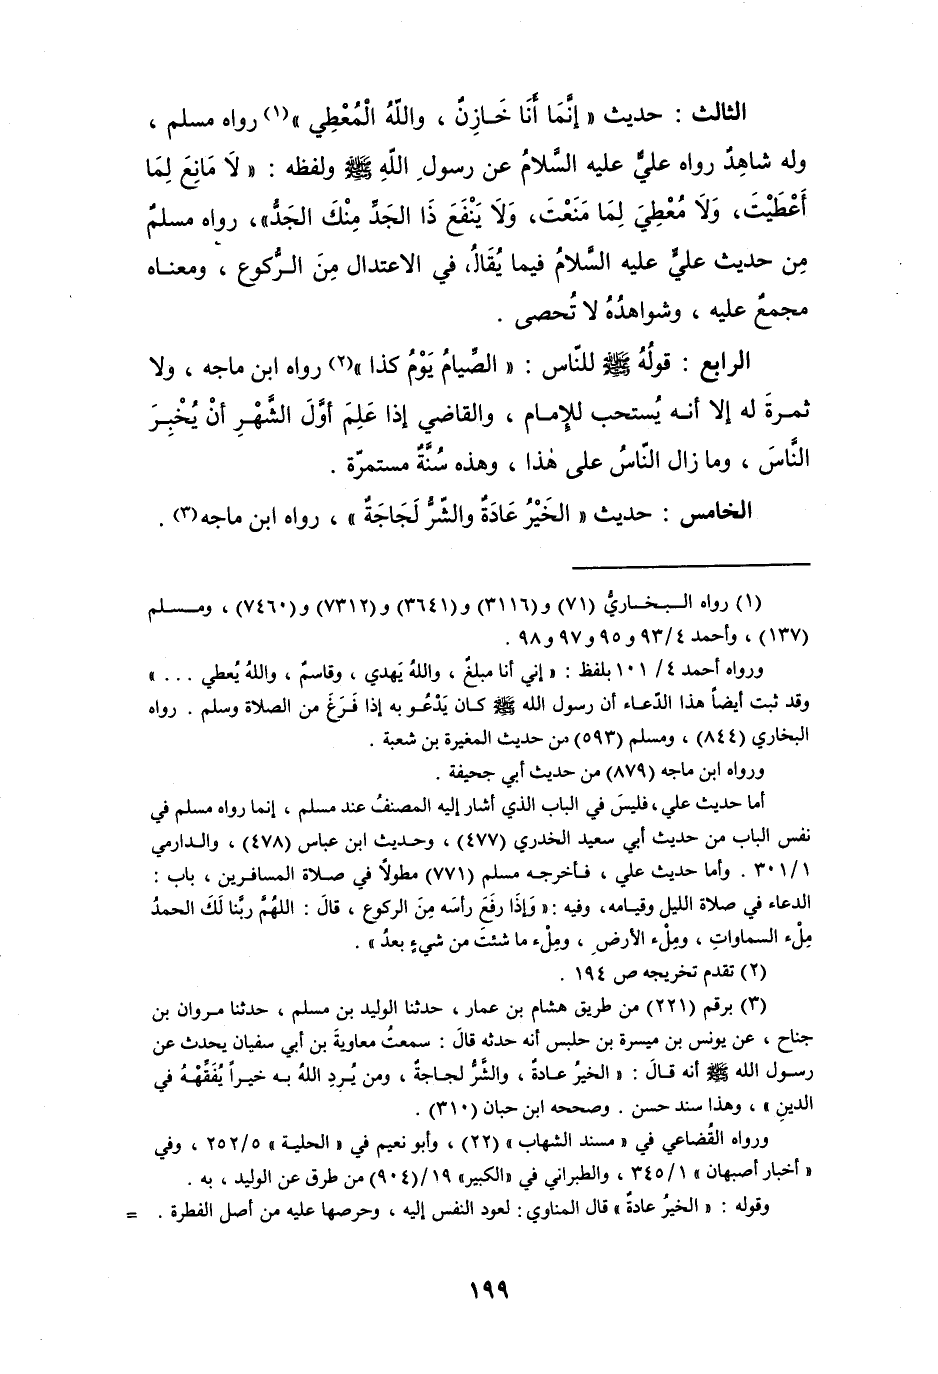 الثالث : حديث « إنَّمَا أَنَا خَازِنٌ ، واللّهُ الْمُعْطِي »(١) رواه مسلم ،
وله شاهِدٌ رواه عليٌّ عليه السَّلامُ عن رسول اللّهِ ﷺ ولفظه : « لَا مَانِعَ لِمَا
أَعْطَيْتَ، وَلَا مُعْطِيَ لِمَا مَنَعْتَ، وَلَا يَنْفَعَ ذَا الجَدِّ مِنْكَ الجَدُّ»، رواه مسلمٌ
مِن حديث عليٍّ عليه السَّلامُ فيما يُقَالُ في الاعتدال مِنَ الرُّكوع ، ومعناه
مجمعٌ عليه ، وشواهدُهُ لا تُحصى .
الرابع : قولُهُ ﷺ للنّاس : « الصِّيامُ يَوْمُ كذا »(٢) رواه ابن ماجه ، ولا
ثمرةَ له إلا أنه يُستحب للإمام ، والقاضي إذا عَلِمَ أوَّلَ الشَّهْرِ أنْ يُخْبِرَ
النَّاسَ ، وما زال النّاسُ على هٰذا ، وهذه سُنَّةٌ مستمرّة .
الخامس : حديث « الخَيْرُ عَادَةٌ والشّرُّ لَجَاجَةٌ » ، رواه ابن ماجه(٣) .
(١) رواه البخاريُّ (٧١) و(٣١١٦) و(٣٦٤١) و(٧٣١٢) و(٧٤٦٠) ، ومسلم
(١٣٧) ، وأحمد ٩٣/٤ و٩٥ و٩٧ و٩٨ .
ورواه أحمد ٤/ ١٠١ بلفظ : « إني أنا مبلغٌ ، واللهُ يَهدي ، وقاسمٌ ، واللهُ يُعطي ... »
وقد ثبت أيضاً هذا الدّعاء أن رسول الله ﷺ كان يَدْعُو به إذا فَرَغَ من الصلاة وسلم . رواه
البخاري (٨٤٤) ، ومسلم (٥٩٣) من حديث المغيرة بن شعبة .
ورواه ابن ماجه (٨٧٩) من حديث أبي جحيفة .
أما حديث علي ، فليسَ في الباب الذي أشار إليه المصنفُ عند مسلم ، إنما رواه مسلم في
نفس الباب من حديث أبي سعيد الخدري (٤٧٧) ، وحديث ابن عباس (٤٧٨) ، والدارمي
٣٠١/١ . وأما حديث علي ، فأخرجه مسلم (٧٧١) مطولاً في صلاة المسافرين ، باب :
الدعاء في صلاة الليل وقيامه، وفيه :« وَإذَا رفَعَ رأسَه مِنَ الركوع ، قالَ : اللهُمَّ ربَّنا لَكَ الحمدُ
مِلْء السماواتِ ، ومِلْء الأرضِ ، ومِلْء ما شئتَ من شيءٍ بعدُ » .
(٢) تقدم تخريجه ص ١٩٤ .
(٣) برقم (٢٢١) من طريق هشام بن عمار ، حدثنا الوليد بن مسلم ، حدثنا مروان بن
جناح ، عن يونس بن ميسرة بن حلبس أنه حدثه قالَ : سمعتُ معاويةَ بن أبي سفيان يحدث عن
رسول الله ﷺ أنه قالَ : « الخيرُ عادةٌ ، والشَّرُّ لجاجةٌ ، ومن يُردِ اللهُ به خيراً يُفَقِّهْهُ في
الدينِ » ، وهذا سند حسن . وصححه ابن حبان (٣١٠) .
ورواه القُضاعي في « مسند الشهاب » (٢٢) ، وأبو نعيم في « الحلية » ٢٥٢/٥ ، وفي
« أخبار أصبهان » ٣٤٥/١ ، والطبراني في «الكبير» ١٩/(٩٠٤) من طرق عن الوليد ، به .
وقوله : « الخيرُ عادةٌ » قال المناوي : لعود النفس إليه ، وحرصها عليه من أصل الفطرة . =
١٩٩